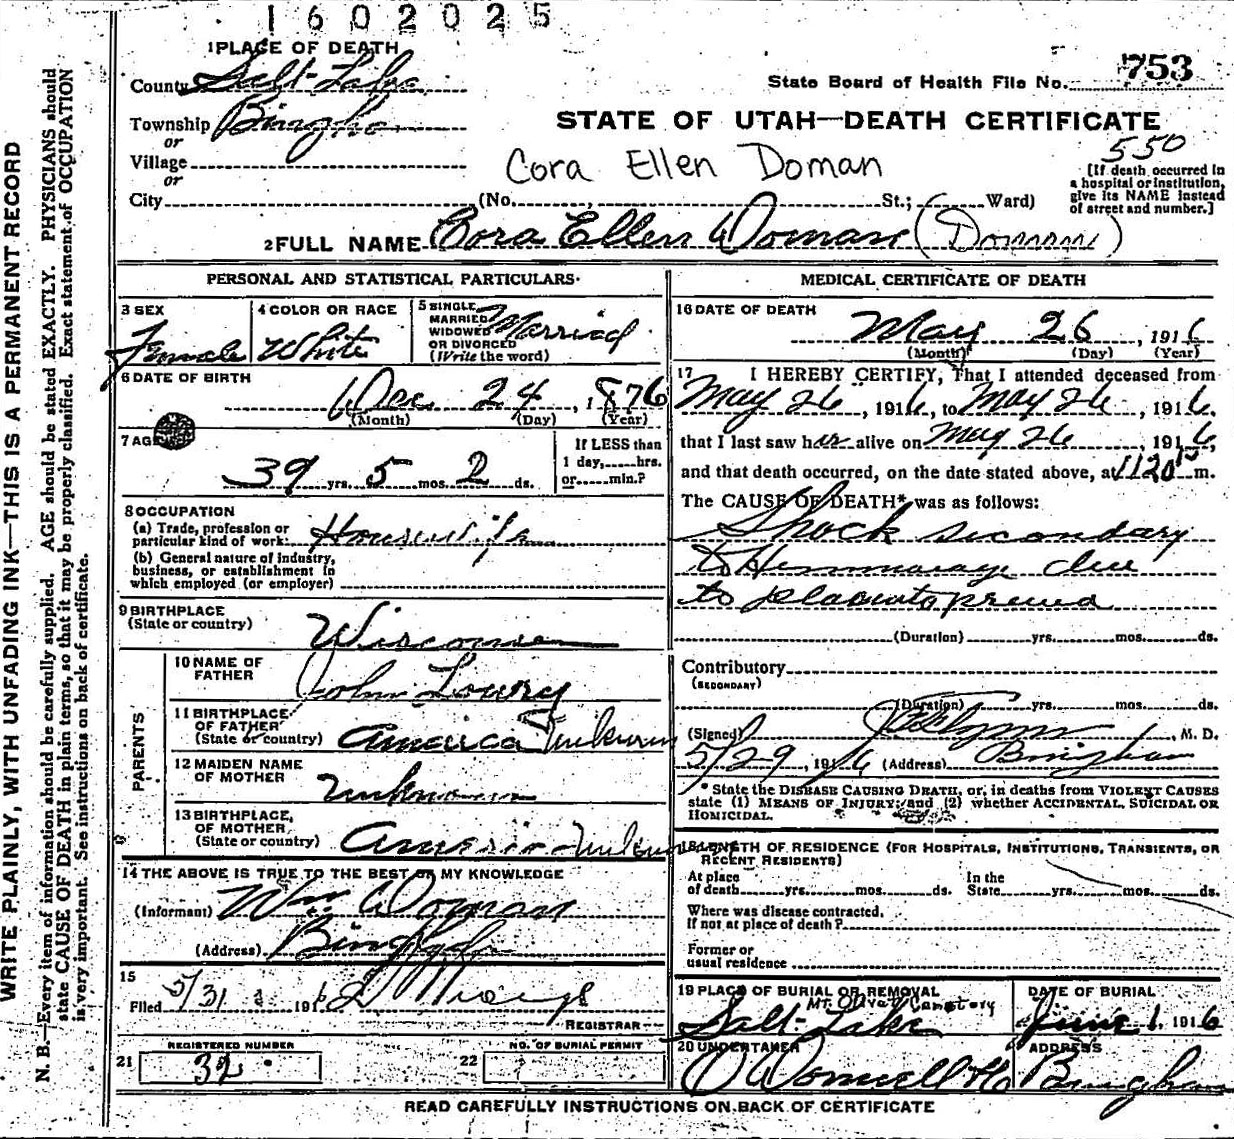 1602025
1 PLACE OF DEATH
County Salt-Lake
State Board of Health File No. 753
Township
or
STATE OF UTAH—DEATH CERTIFICATE
550
Village
or
Cora Ellen Doman
[If death occurred in
a hospital or institution,
give its NAME instead
of street and number.]
City (No. , St.; Ward)
2 FULL NAME Cora Ellen Doman (Doman)
PERSONAL AND STATISTICAL PARTICULARS
3 SEX
Female
4 COLOR OR RACE
White
5 SINGLE
MARRIED
WIDOWED
OR DIVORCED
(Write the word)
Married
6 DATE OF BIRTH
Dec 24, 1876
(Month) (Day) (Year)
7 AGE
39 yrs. 5 mos. 2 ds.
If LESS than
1 day, hrs.
or min.?
8 OCCUPATION
(a) Trade, profession or
particular kind of work: Housewife
(b) General nature of industry,
business, or establishment in
which employed (or employer)
9 BIRTHPLACE
(State or country)
Wisconsin
PARENTS
10 NAME OF
FATHER
John Lowry
11 BIRTHPLACE
OF FATHER
(State or country) America Unknown
12 MAIDEN NAME
OF MOTHER
Unknown
13 BIRTHPLACE
OF MOTHER
(State or country) America Unknown
14 THE ABOVE IS TRUE TO THE BEST OF MY KNOWLEDGE
(Informant) Wm Doman
(Address) Bingham
15
Filed 5/31 1916
REGISTRAR
REGISTERED NUMBER
21 32
NO. OF BURIAL PERMIT
22
MEDICAL CERTIFICATE OF DEATH
16 DATE OF DEATH
May 26, 1916
(Month) (Day) (Year)
17 I HEREBY CERTIFY, That I attended deceased from
May 26, 1916, to May 26, 1916,
that I last saw her alive on May 26, 1916,
and that death occurred, on the date stated above, at 1120 P m.
The CAUSE OF DEATH* was as follows:
Shock secondary
to Hemmorage due
to placenta previa
(Duration) yrs. mos. ds.
Contributory
(SECONDARY)
(Duration) yrs. mos. ds.
(Signed) , M. D.
5/29, 1916 (Address) Bingham
* State the DISEASE CAUSING DEATH, or, in deaths from VIOLENT CAUSES
state (1) MEANS OF INJURY; and (2) whether ACCIDENTAL, SUICIDAL OR
HOMICIDAL.
18 LENGTH OF RESIDENCE (FOR HOSPITALS, INSTITUTIONS, TRANSIENTS, OR
RECENT RESIDENTS)
At place
of death yrs. mos. ds.
In the
State yrs. mos. ds.
Where was disease contracted,
If not at place of death?
Former or
usual residence
19 PLACE OF BURIAL OR REMOVAL
Mt. Olivet Cemetery
Salt-Lake
DATE OF BURIAL
June 1, 1916
20 UNDERTAKER
O'Donnell
ADDRESS
Bingham
READ CAREFULLY INSTRUCTIONS ON BACK OF CERTIFICATE
WRITE PLAINLY, WITH UNFADING INK—THIS IS A PERMANENT RECORD
N. B.—Every item of information should be carefully supplied. AGE should be stated EXACTLY. PHYSICIANS should
state CAUSE OF DEATH in plain terms, so that it may be properly classified. Exact statement of OCCUPATION
is very important. See instructions on back of certificate.